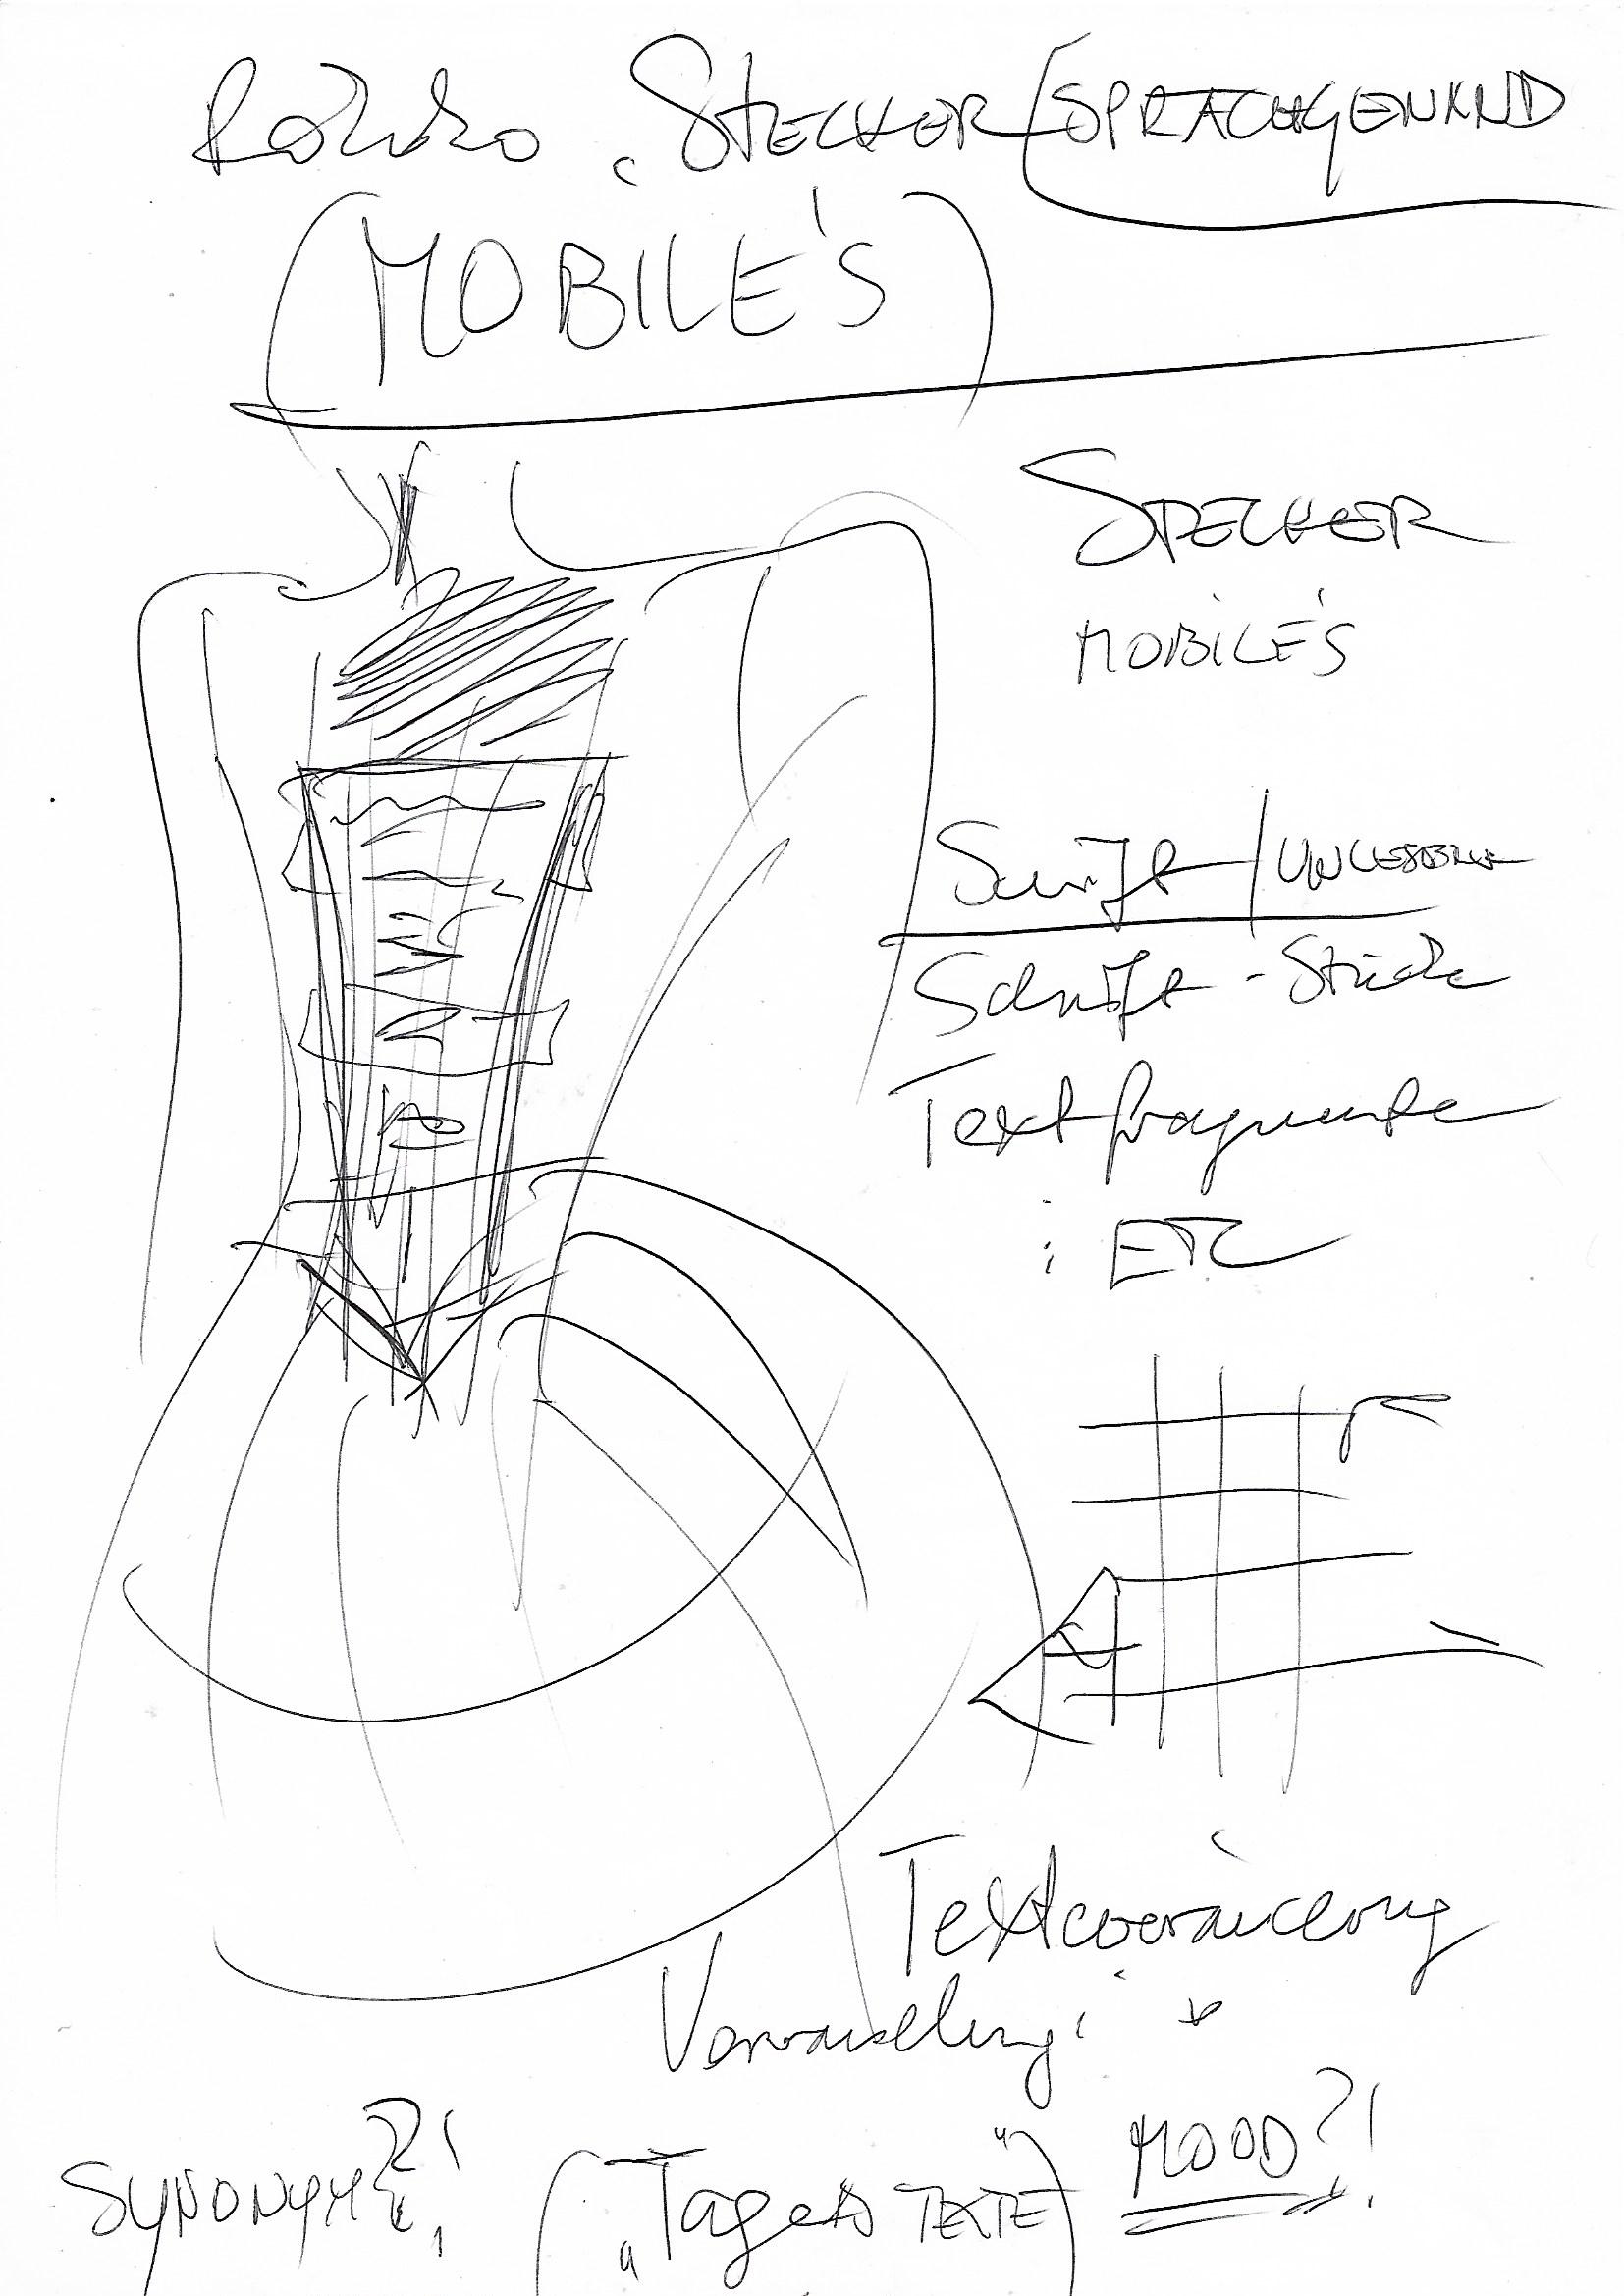 STECKER/SPRACHGEWAND
(MOBILE'S)
STECKER
MOBILE'S
Schrift/UNLESBAR
Schrift-Stücke
Textfragmente
: ETC
Verwandlung:
SYNONYM?!
("Tages TEXTE")
MOOD?!